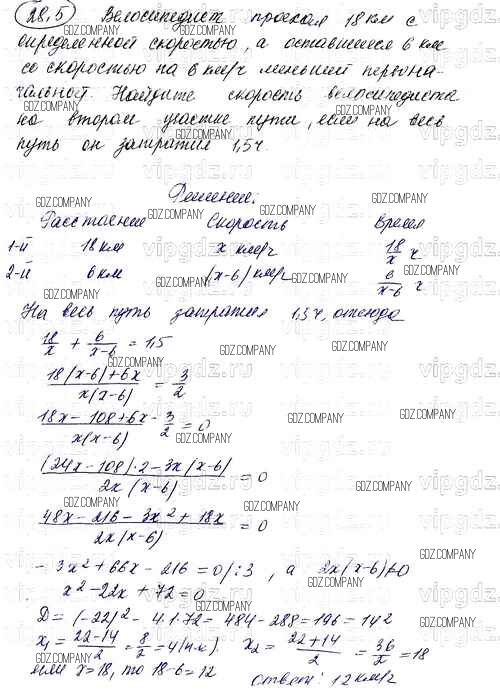 28.5) Велосипедист проехал 18 км с
определенной скоростью, а оставшиеся 6 км
со скоростью на 6 км/ч меньшей первона-
чальной. Найдите скорость велосипедиста
на втором участке пути, если на весь
путь он затратил 1,5 ч.
Решение:
Расстояние Скорость Время
1-й 18 км x км/ч 18/x ч
2-й 6 км (x-6) км/ч 6/x-6 ч
На весь путь затратил 1,5 ч, отсюда
18/x + 6/x-6 = 1,5
18(x-6)+6x / x(x-6) = 3/2
18x - 108 + 6x / x(x-6) - 3/2 = 0
(24x-108)·2 - 3x(x-6) / 2x(x-6) = 0
48x - 216 - 3x² + 18x / 2x(x-6) = 0
- 3x² + 66x - 216 = 0 /:3, а 2x(x-6)≠0
x² - 22x + 72 = 0
D = (-22)² - 4·1·72 = 484 - 288 = 196 = 14²
x₁ = 22-14/2 = 8/2 = 4 (п.к.) x₂ = 22+14/2 = 36/2 = 18
или x=18, то 18-6=12 Ответ: 12 км/ч
GDZ.COMPANY
vipgdz.ru